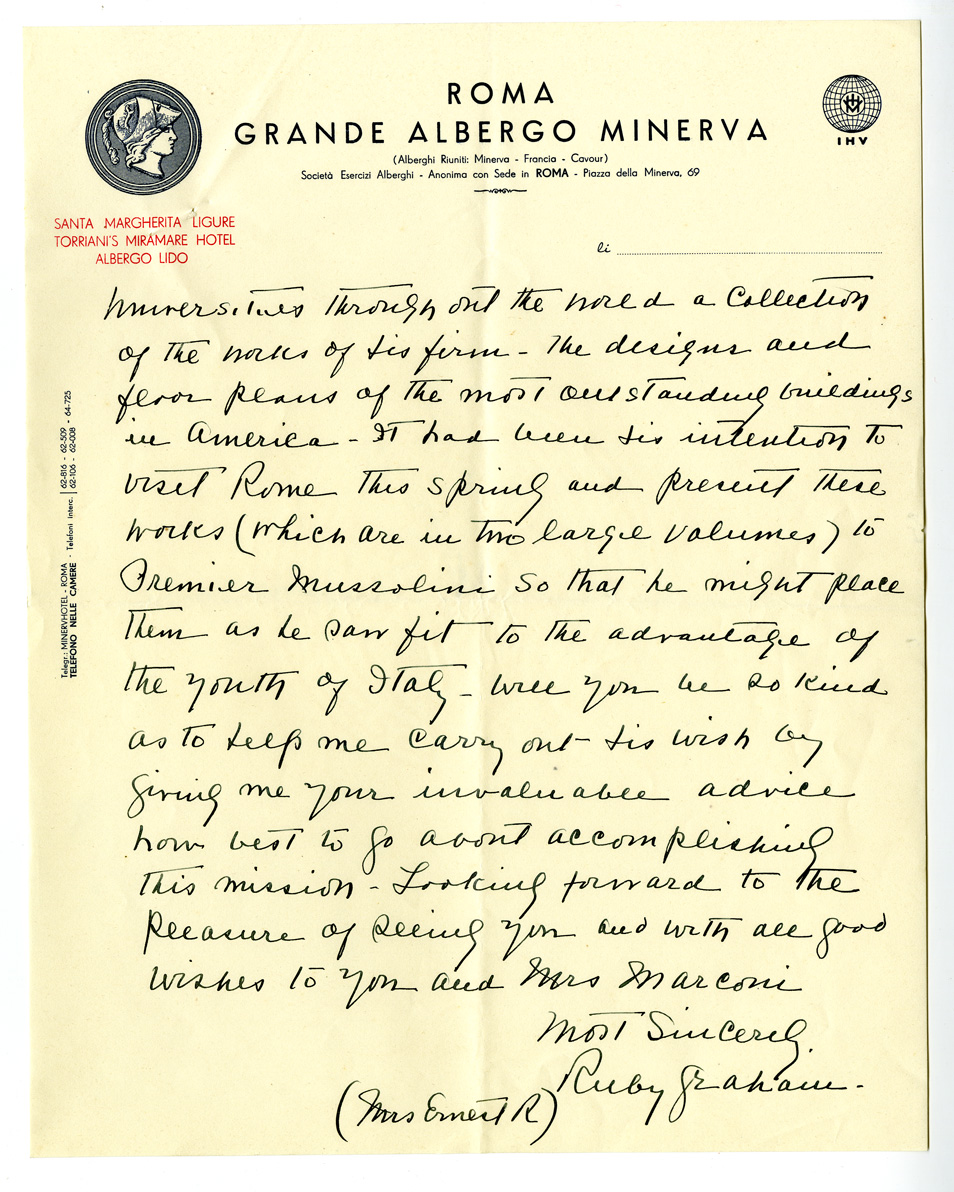 ROMA
GRANDE ALBERGO MINERVA
(Alberghi Riuniti: Minerva - Francia - Cavour)
Società Esercizi Alberghi - Anonima con Sede in ROMA - Piazza della Minerva, 69
IHV
SANTA MARGHERITA LIGURE
TORRIANI'S MIRAMARE HOTEL
ALBERGO LIDO
li
Telegr.: MINERVHOTEL - ROMA
TELEFONO NELLE CAMERE - Telefoni interc. 62-816 - 62-509 - 64-725
62-106 - 62-008
Universities through out the world a Collection
of the works of his firm - The designs and
floor plans of the most outstanding buildings
in America - It had been his intention to
visit Rome this spring and present these
works (which are in two large volumes) to
Premier Mussolini so that he might place
them as he saw fit to the advantage of
the youth of Italy - Will you be so kind
as to help me carry out his wish by
giving me your invaluable advice
how best to go about accomplishing
this mission - Looking forward to the
pleasure of seeing you and with all good
wishes to you and Mrs Marconi
Most Sincerely
Ruby Graham -
(Mrs Ernest R)